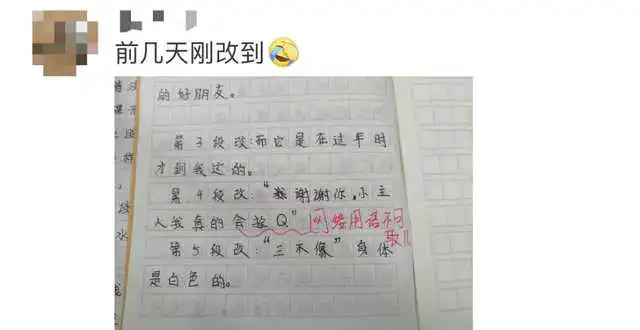 前几天刚改到
的好朋友。
第3段改:而它是在过年时
才到我这的。
第4段改:“谢谢你,小主
人我真的会Q”
网络用语不可
取!!
第5段改:“三不像”身体
是白色的。